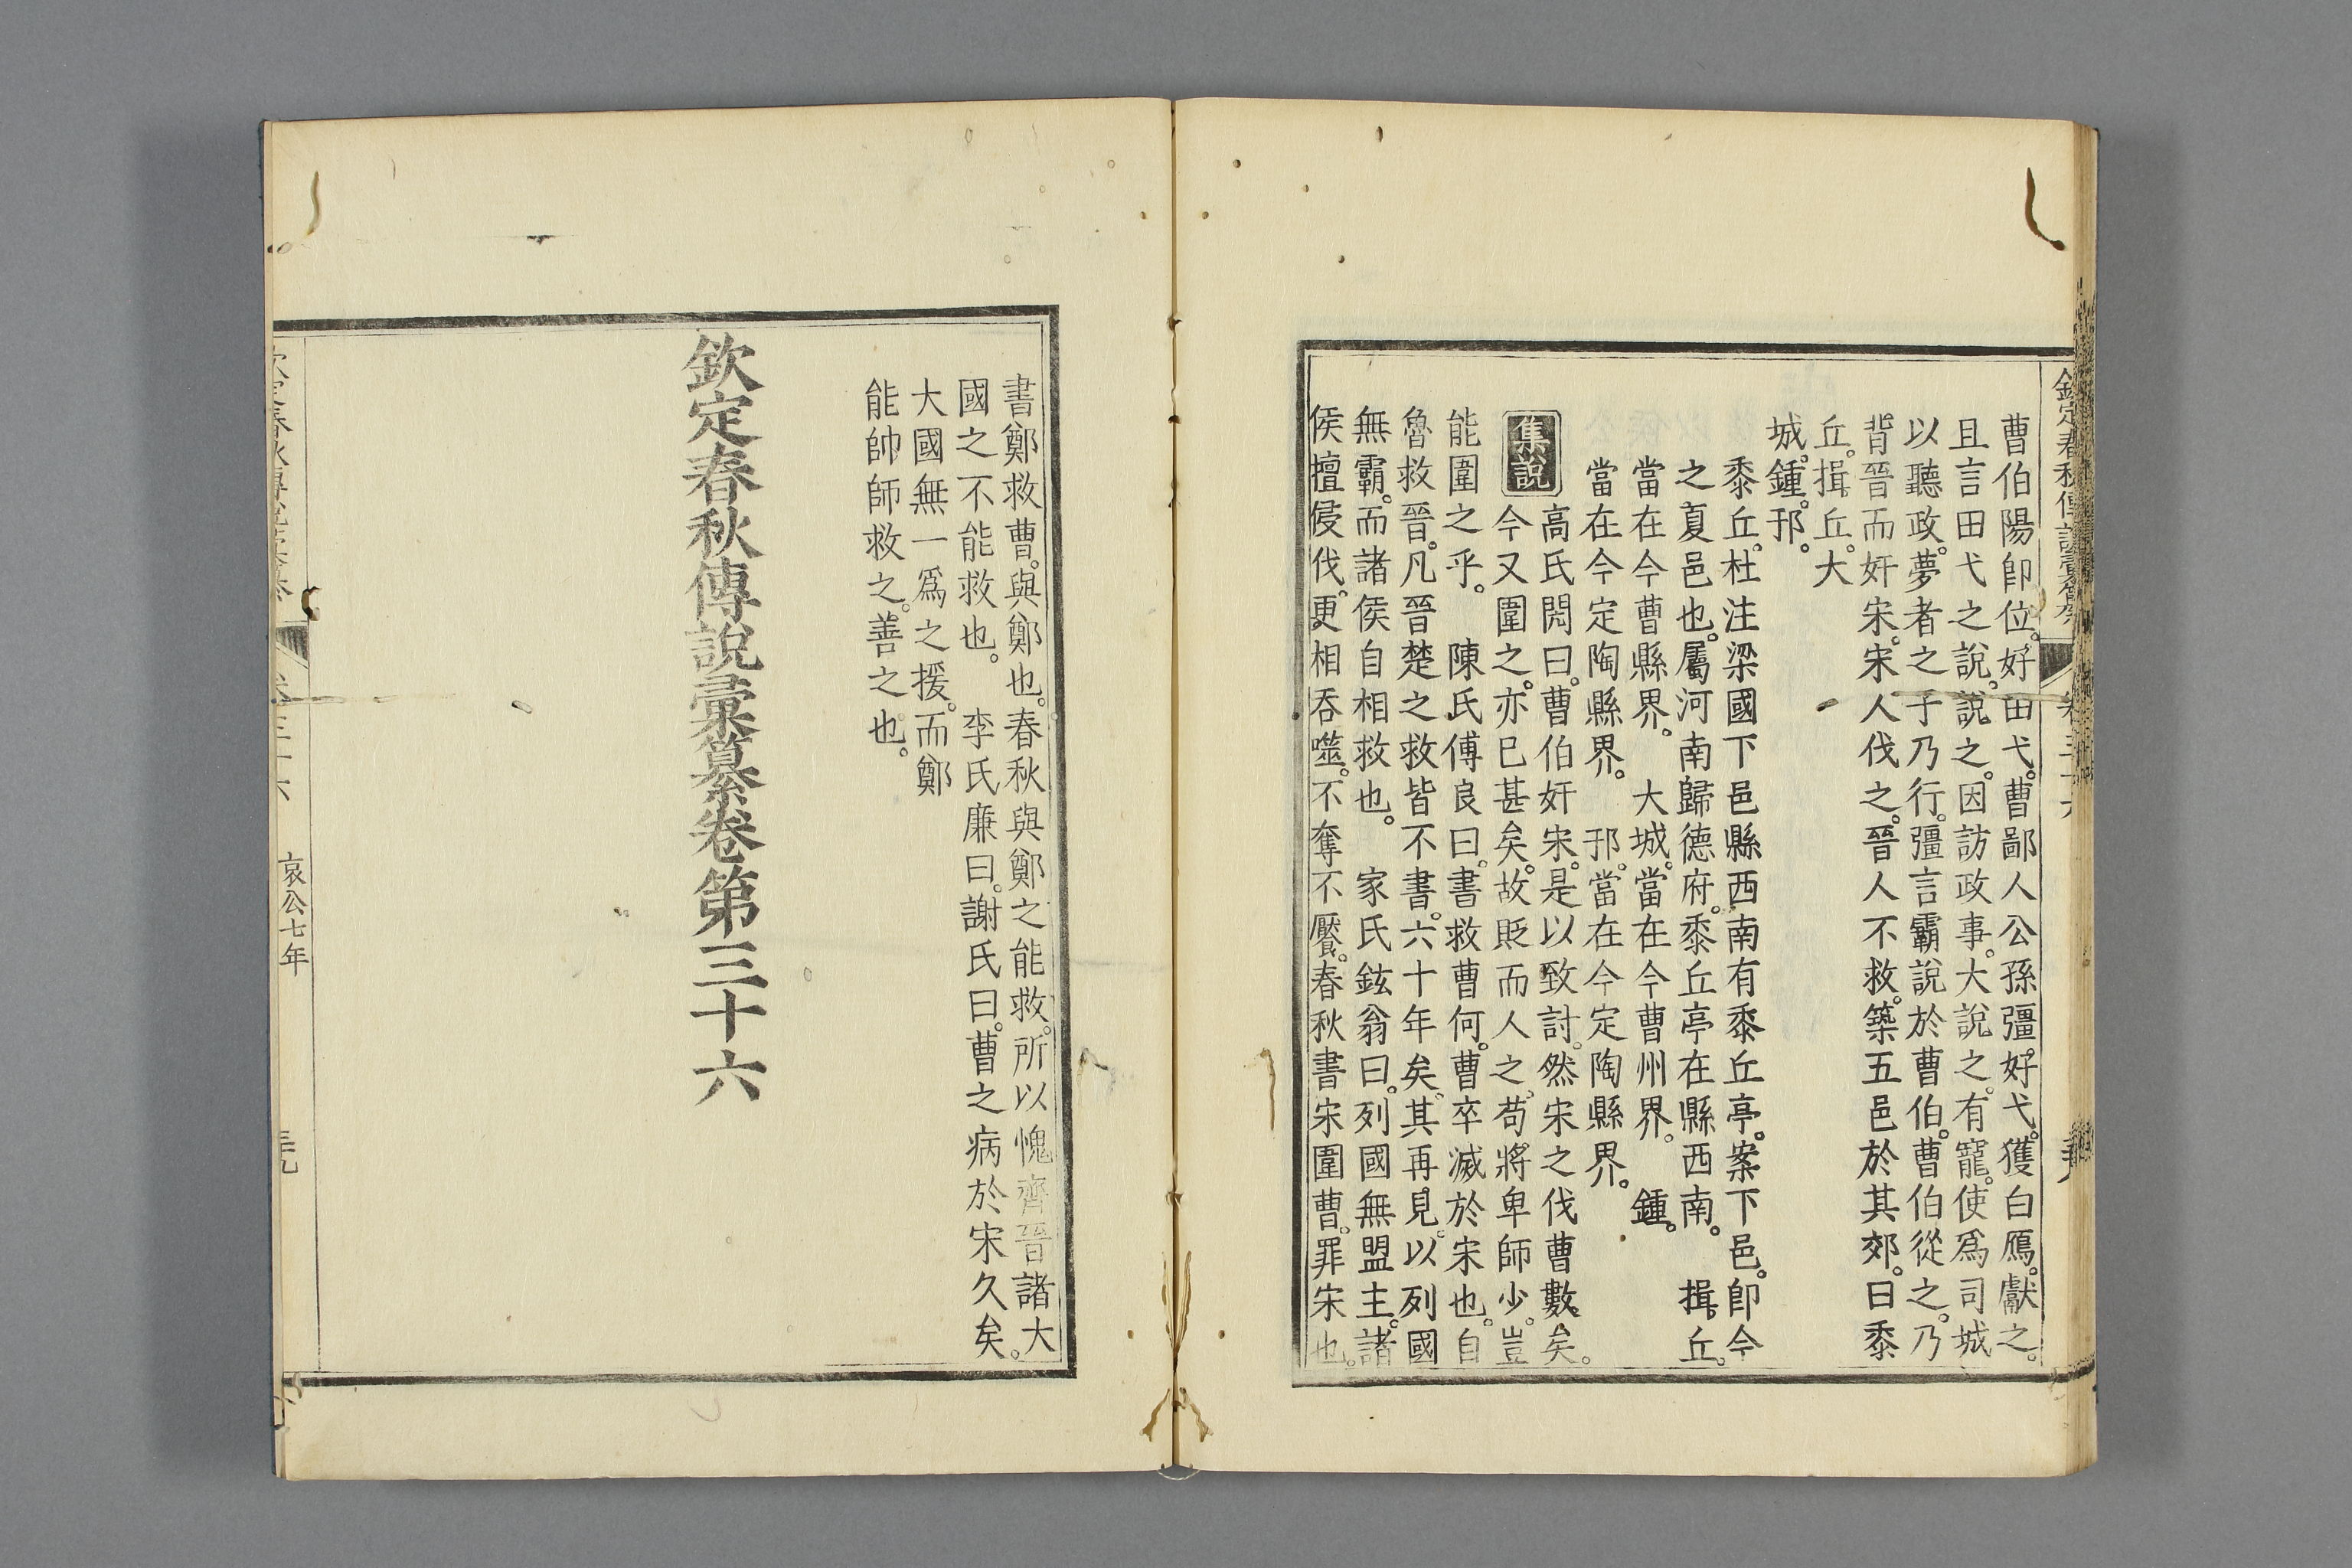 曹伯陽卽位。好田弋。曹鄙人公孫彊。好弋。獲白鴈。獻之。
且言田弋之說。說之。因訪政事。大說之。有寵。使爲司城
以聽政。夢者之子乃行。彊言霸說於曹伯。曹伯從之。乃
背晉而奸宋。宋人伐之。晉人不救。築五邑於其郊。曰黍
丘。揖丘。大
城。鍾。邘。
黍丘。杜注梁國下邑縣西南有黍丘亭。案下邑。卽今
之夏邑也。屬河南歸德府。黍丘亭在縣西南。 揖丘。
當在今曹縣界。 大城。當在今曹州界。 鍾。
當在今定陶縣界。 邘。當在今定陶縣界。
集說
高氏閌曰。曹伯奸宋。是以致討。然宋之伐曹數矣。
今又圍之。亦已甚矣。故貶而人之。苟將卑師少。豈
能圍之乎。 陳氏傅良曰。書救曹何。曹卒滅於宋也。自
魯救晉。凡晉楚之救皆不書。六十年矣。其再見。以列國
無霸。而諸侯自相救也。 家氏鉉翁曰。列國無盟主。諸
侯擅侵伐。更相吞噬。不奪不饜。春秋書宋圍曹。罪宋也。
書鄭救曹。與鄭也。春秋與鄭之能救。所以愧齊晉諸大
國之不能救也。 李氏廉曰。謝氏曰。曹之病於宋久矣。
大國無一爲之援。而鄭
能帥師救之。善之也。
欽定春秋傳說彙纂卷第三十六
哀公七年